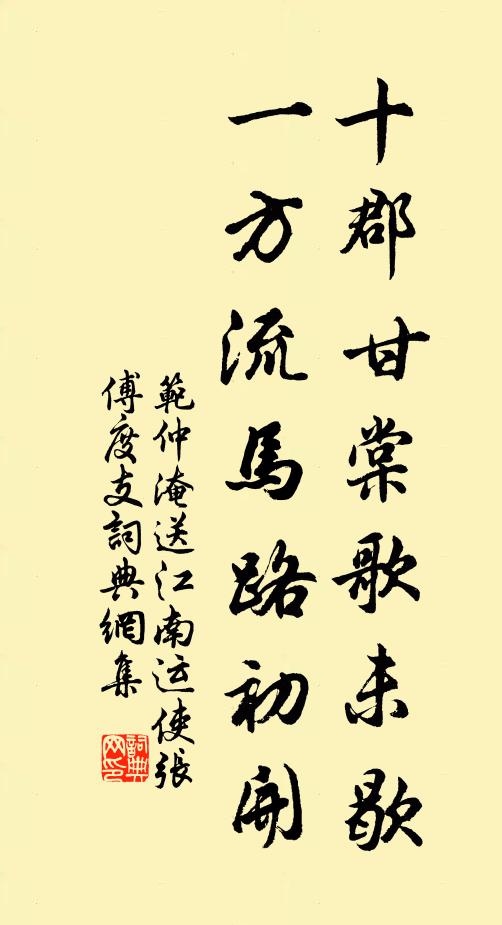 十郡甘棠歌未歇
一方流馬路初開
範仲淹送江南运使張
傅度支詞典網集
詞典
网印